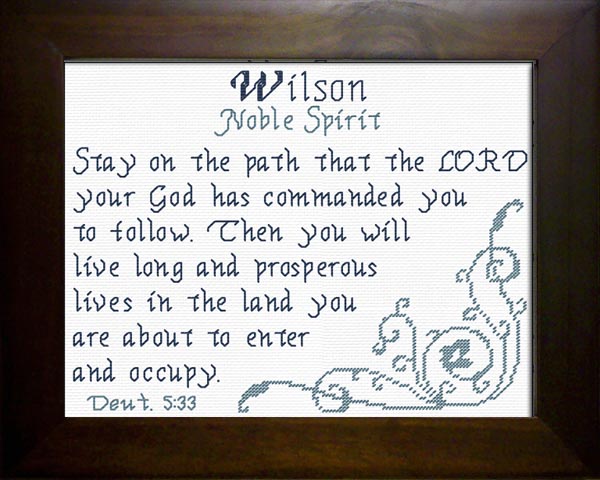 Wilson
Noble Spirit
Stay on the path that the LORD
your God has commanded you
to follow. Then you will
live long and prosperous
lives in the land you
are about to enter
and occupy.
Deut. 5:33